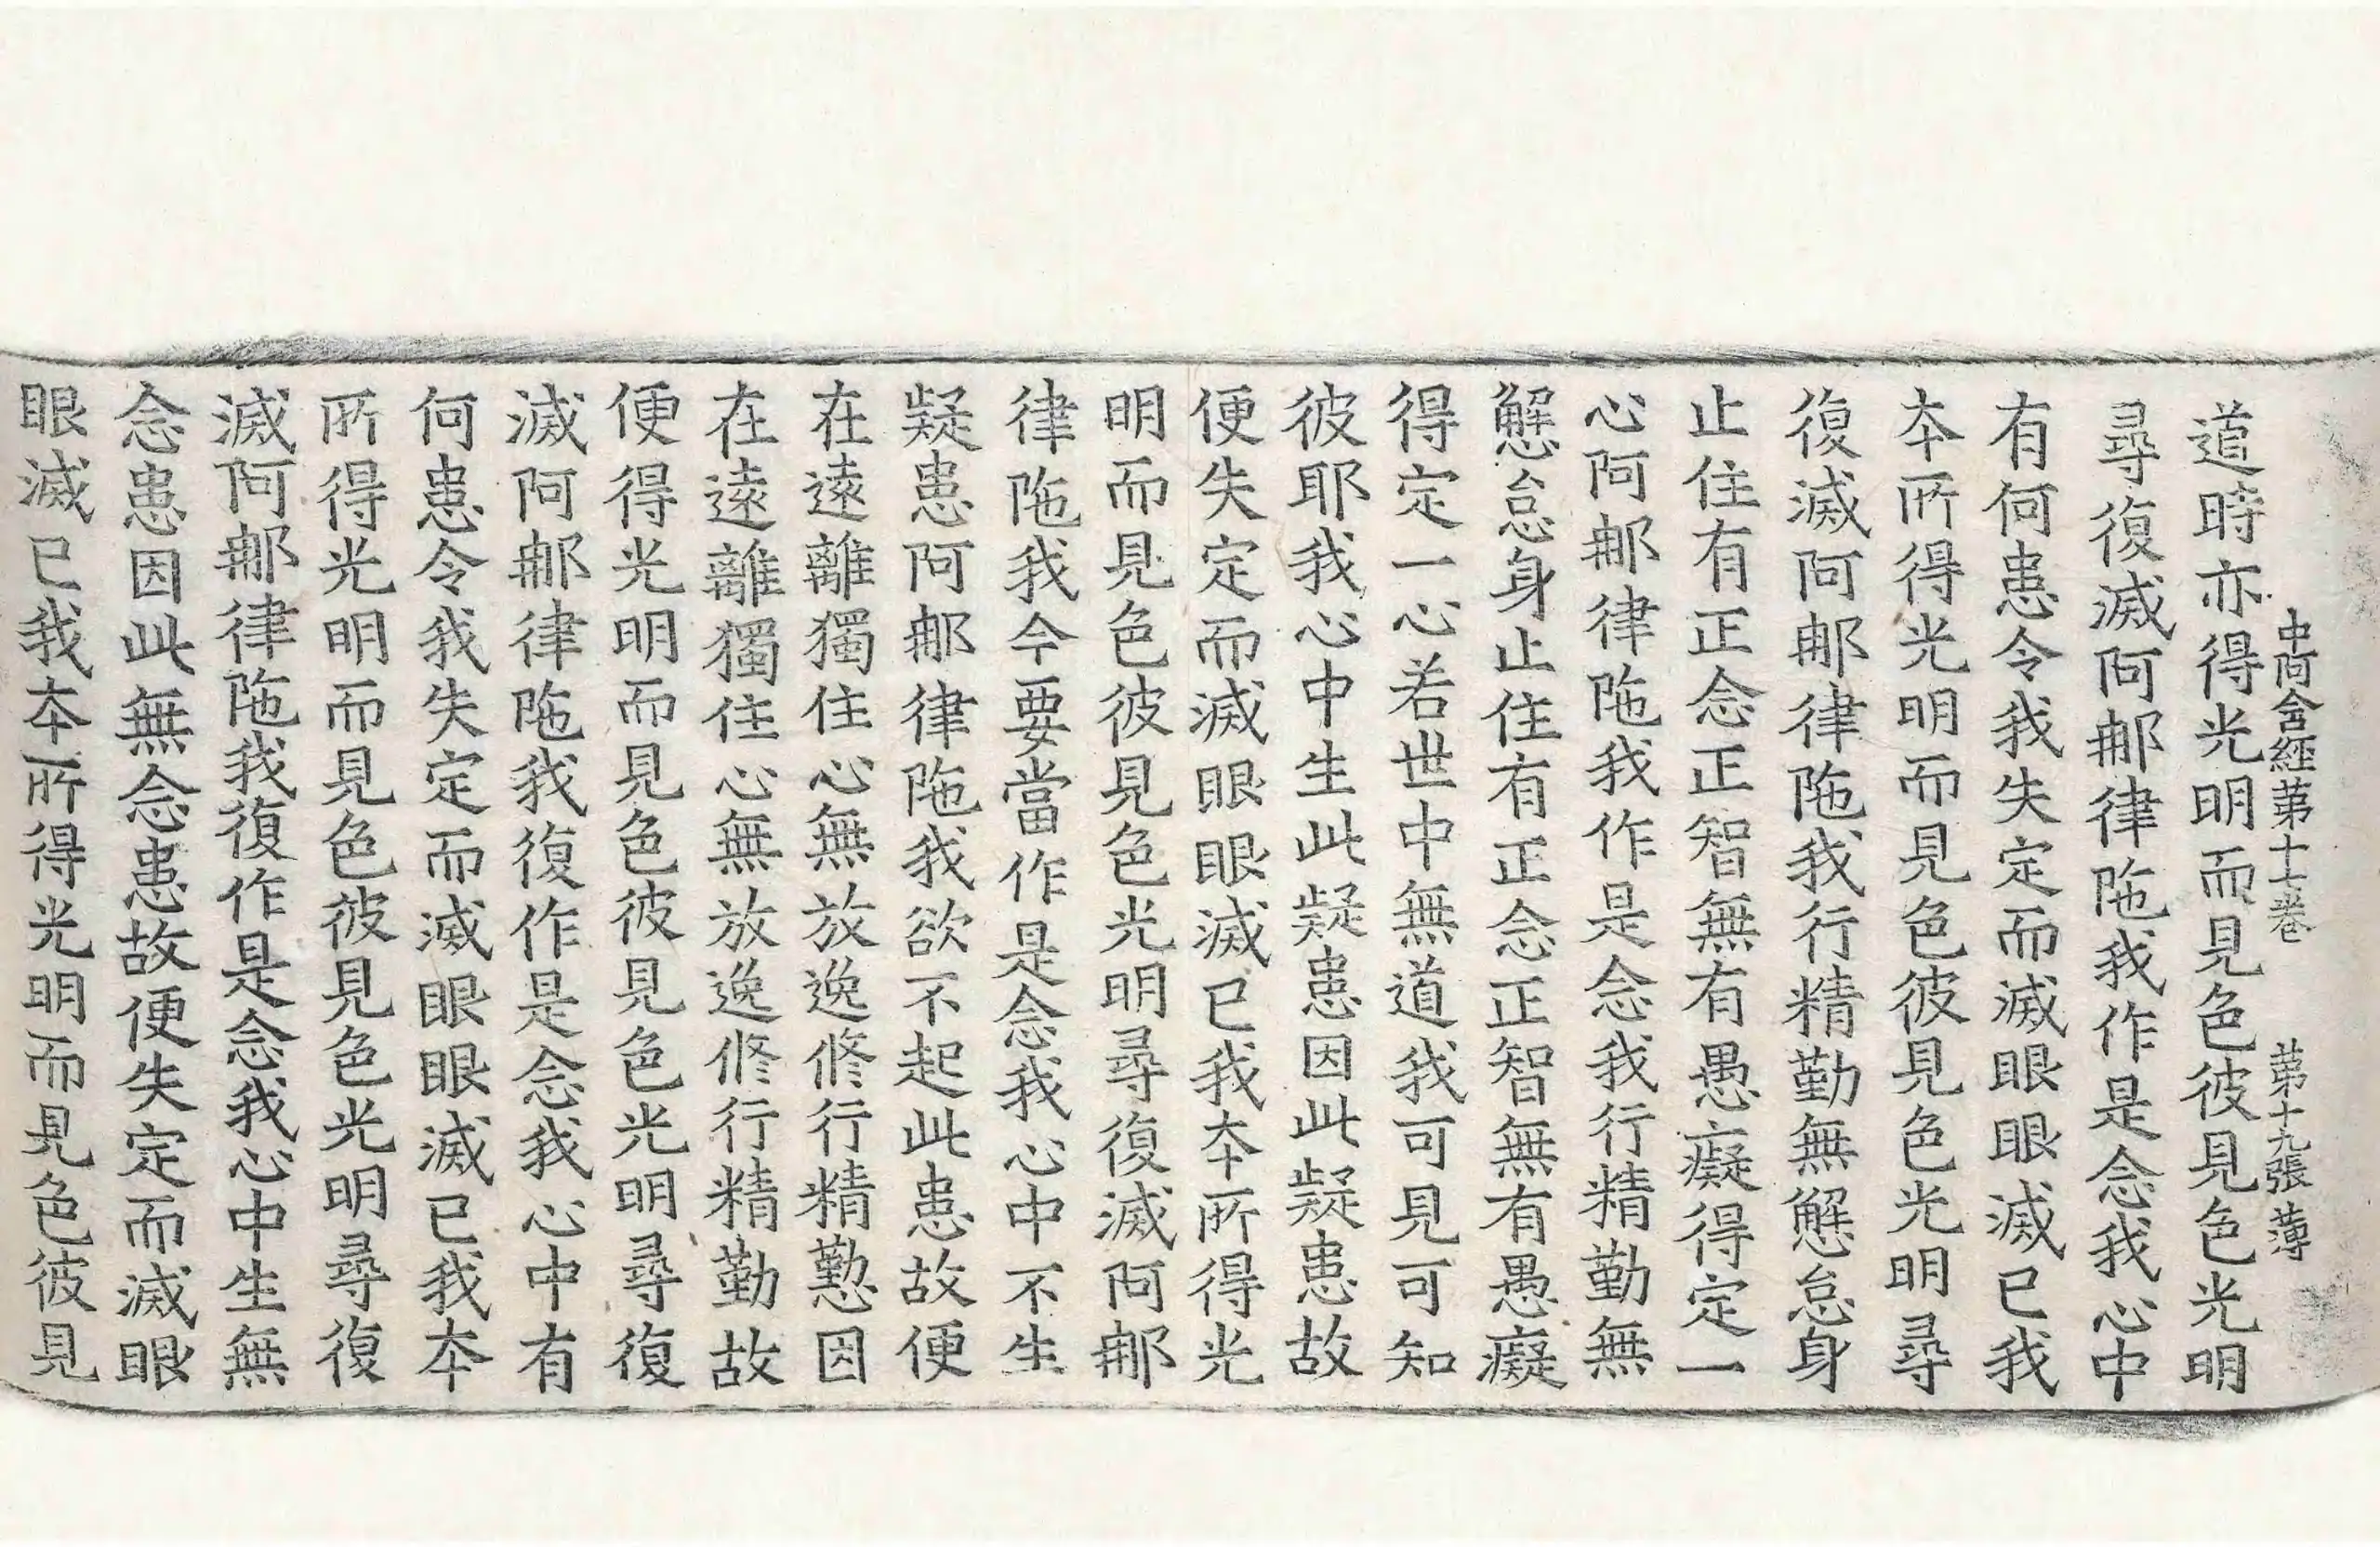 中阿含經第十七卷　第十九張　薄
道時亦得光明而見色彼見色光明
尋復滅阿那律陁我作是念我心中
有何患令我失定而滅眼眼滅已我
本所得光明而見色彼見色光明尋
復滅阿那律陁我行精勤無懈怠身
止住有正念正智無有愚癡得定一
心阿那律陁我作是念我行精勤無
懈怠身止住有正念正智無有愚癡
得定一心若世中無道我可見可知
彼耶我心中生此疑患因此疑患故
便失定而滅眼眼滅已我本所得光
明而見色彼見色光明尋復滅阿那
律陁我今要當作是念我心中不生
疑患阿那律陁我欲不起此患故便
在遠離獨住心無放逸修行精懃因
在遠離獨住心無放逸修行精勤故
便得光明而見色彼見色光明尋復
滅阿那律陁我復作是念我心中有
何患令我失定而滅眼眼滅已我本
所得光明而見色彼見色光明尋復
滅阿那律陁我復作是念我心中生無
念患因此無念患故便失定而滅眼
眼滅已我本所得光明而見色彼見